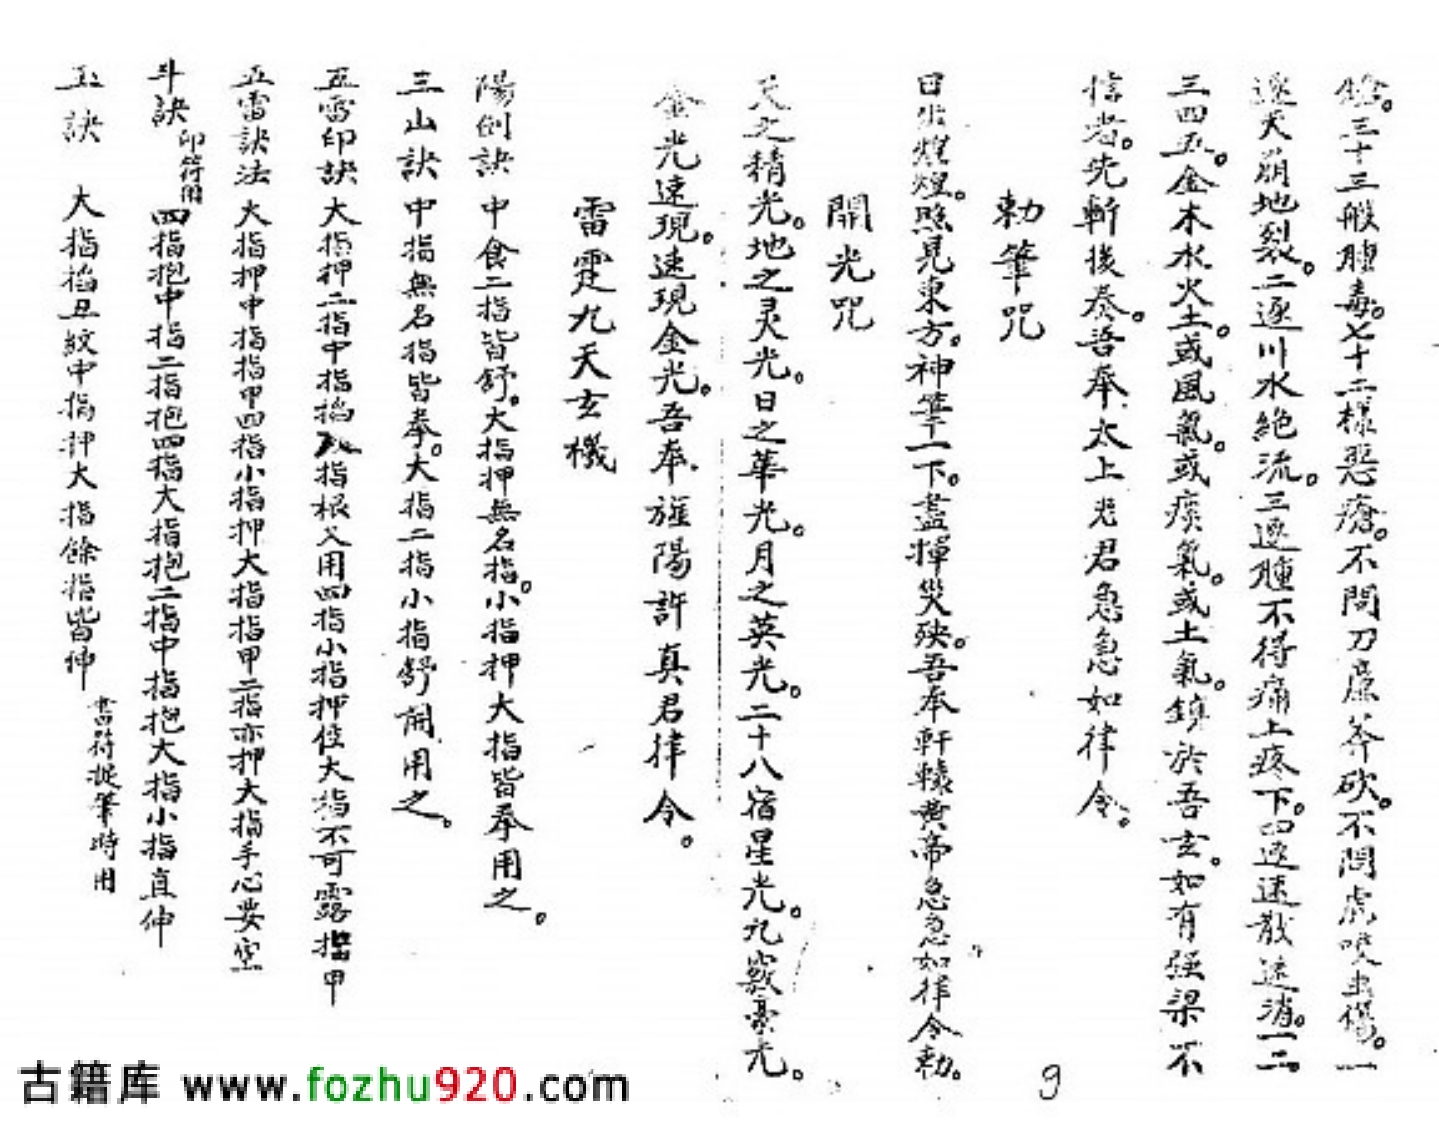 三十三般腫毒。七十二樣惡瘡。不問刀鐮斧砍。不問虎咬虫傷。一
逐天崩地裂。二逐川水絕流。三逐腫不得痛上疼下。四逐速散速消。一二
三四五。金木水火土。或風氣。或痰氣。或土氣。鎮於吾玄。如有强梁不
信者。先斬後奏。吾奉太上老君急急如律令。
勅筆咒
日出煌煌。照見東方。神筆一下。盡揮災殃。吾奉軒轅黄帝急急如律令勅。
開光咒
天之精光。地之灵光。日之華光。月之英光。二十八宿星光。九竅豪光。
金光速現。速現金光。吾奉旌陽許真君律令。
雷霆九天玄機
陽倒訣 中食二指皆舒。大指押無名指。小指押大指皆拳用之。
三山訣 中指無名指皆拳。大指二指小指舒開用之。
五雷印訣 大指押二指中指掐 指根又用四指小指押住大指不可露指甲
五雷訣法 大指押中指指甲四指小指押大指指甲二指亦押大指手心要空
斗訣 印符用 四指抱中指二指抱四指大指抱二指中指抱大指小指直伸
玉訣 大指掐丑紋中指押大指餘指皆伸 書符捉筆時用
9
古籍库 www.fozhu920.com